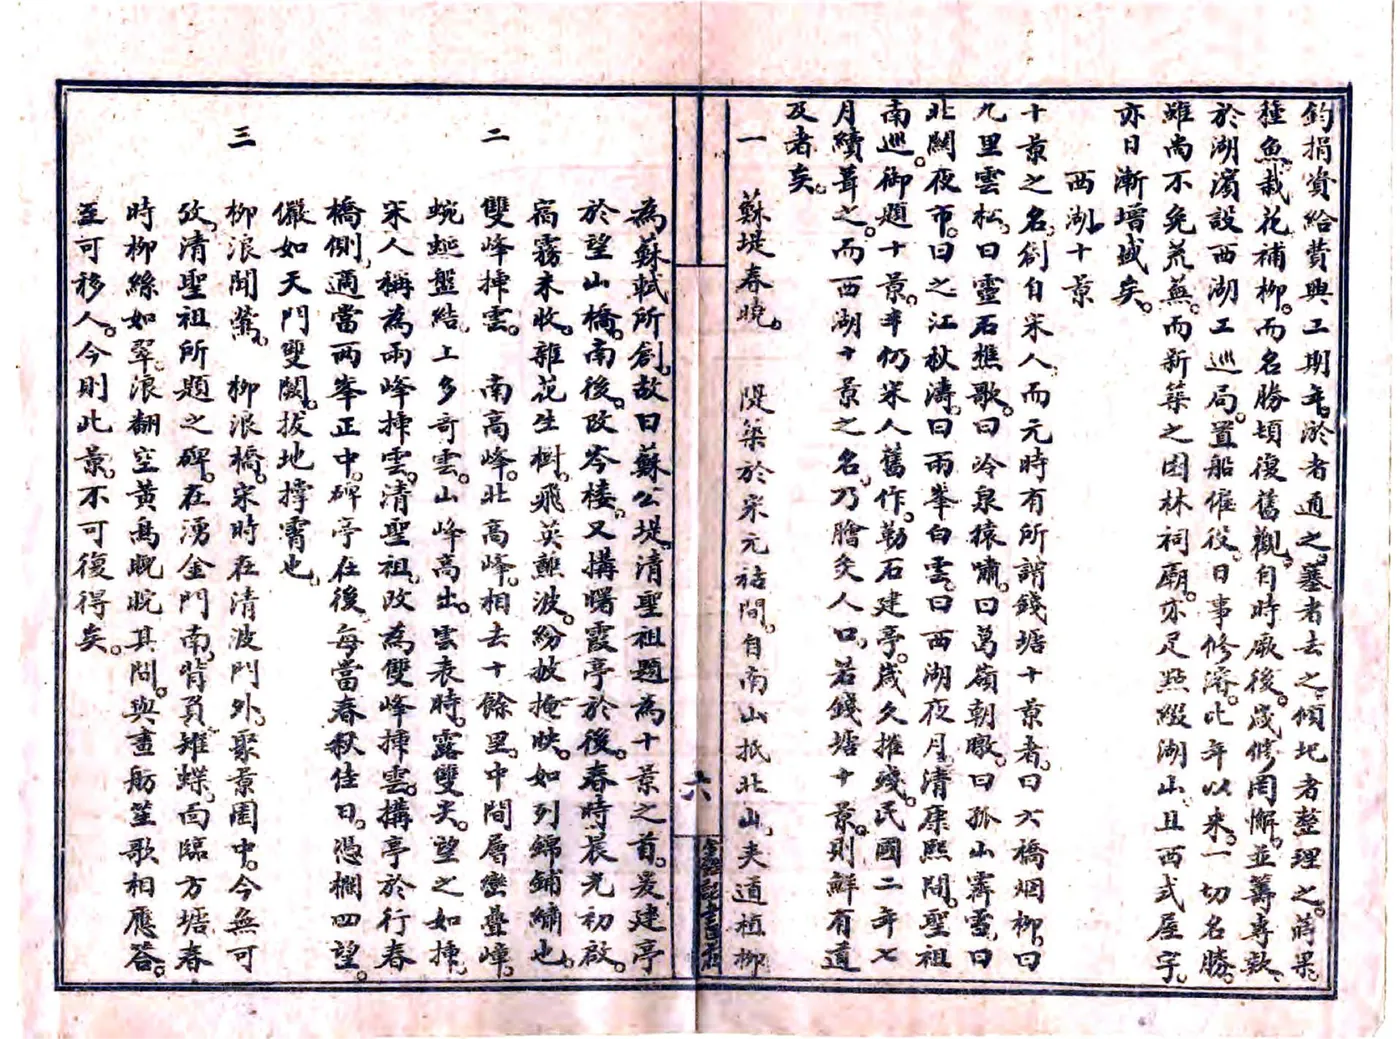 鈞捐資給費與工期年。淤者通之。塞者去之。傾圮者整理之。蒔果。
種魚。栽花。補柳。而名勝頓復舊觀。自時厥後。歲修罔懈。並籌專款。
於湖濱設西湖工巡局。置船僱役。日事修濬。比年以來。一切名勝。
雖尚不免荒蕪。而新築之園林祠廟。亦足點綴湖山。且西式屋宇。
亦日漸增盛矣。
西湖十景
十景之名。創自宋人。而元時有所謂錢塘十景者。曰六橋烟柳。曰
九里雲松。曰靈石樵歌。曰冷泉猿嘯。曰葛嶺朝暾。曰孤山霽雪。曰
北關夜市。曰之江秋濤。曰兩峯白雲。曰西湖夜月。清康熙間。聖祖
南巡。御題十景。率仍宋人舊作。勒石建亭。歲久摧殘。民國二年七
月續葺之。而西湖十景之名。乃膾炙人口。若錢塘十景。則鮮有道
及者矣。
一 蘇堤春曉。 隄築於宋元祐間。自南山抵北山。夾道植柳
為蘇軾所創。故曰蘇公堤。清聖祖題為十景之首。爰建亭
於望山橋。南後。改岑樓。又搆曙霞亭於後。春時晨光初啟。
宿霧未收。雜花生樹。飛英蘸波。紛披掩映。如列錦鋪繡也。
二 雙峰插雲。 南高峰。北高峰。相去十餘里。中間層巒疊嶂。
蜿蜒盤結。上多奇雲。山峰高出。雲表時。露雙尖。望之如插。
宋人稱為兩峰插雲。清聖祖。改為雙峰插雲。搆亭於行春
橋側。適當兩峯正中。碑亭在後。每當春秋佳日。憑欄四望。
儼如天門雙闕。拔地撐霄也。
三 柳浪聞鶯。 柳浪橋。宋時在清波門外。聚景園中。今無可
攷。清聖祖所題之碑。在湧金門南。背負雉蝶。面臨方塘。春
時柳絲如翠。浪翻空。黃鳥睍睆其間。與畫舫笙歌相應答。
至可移人。今則此景。不可復得矣。
六